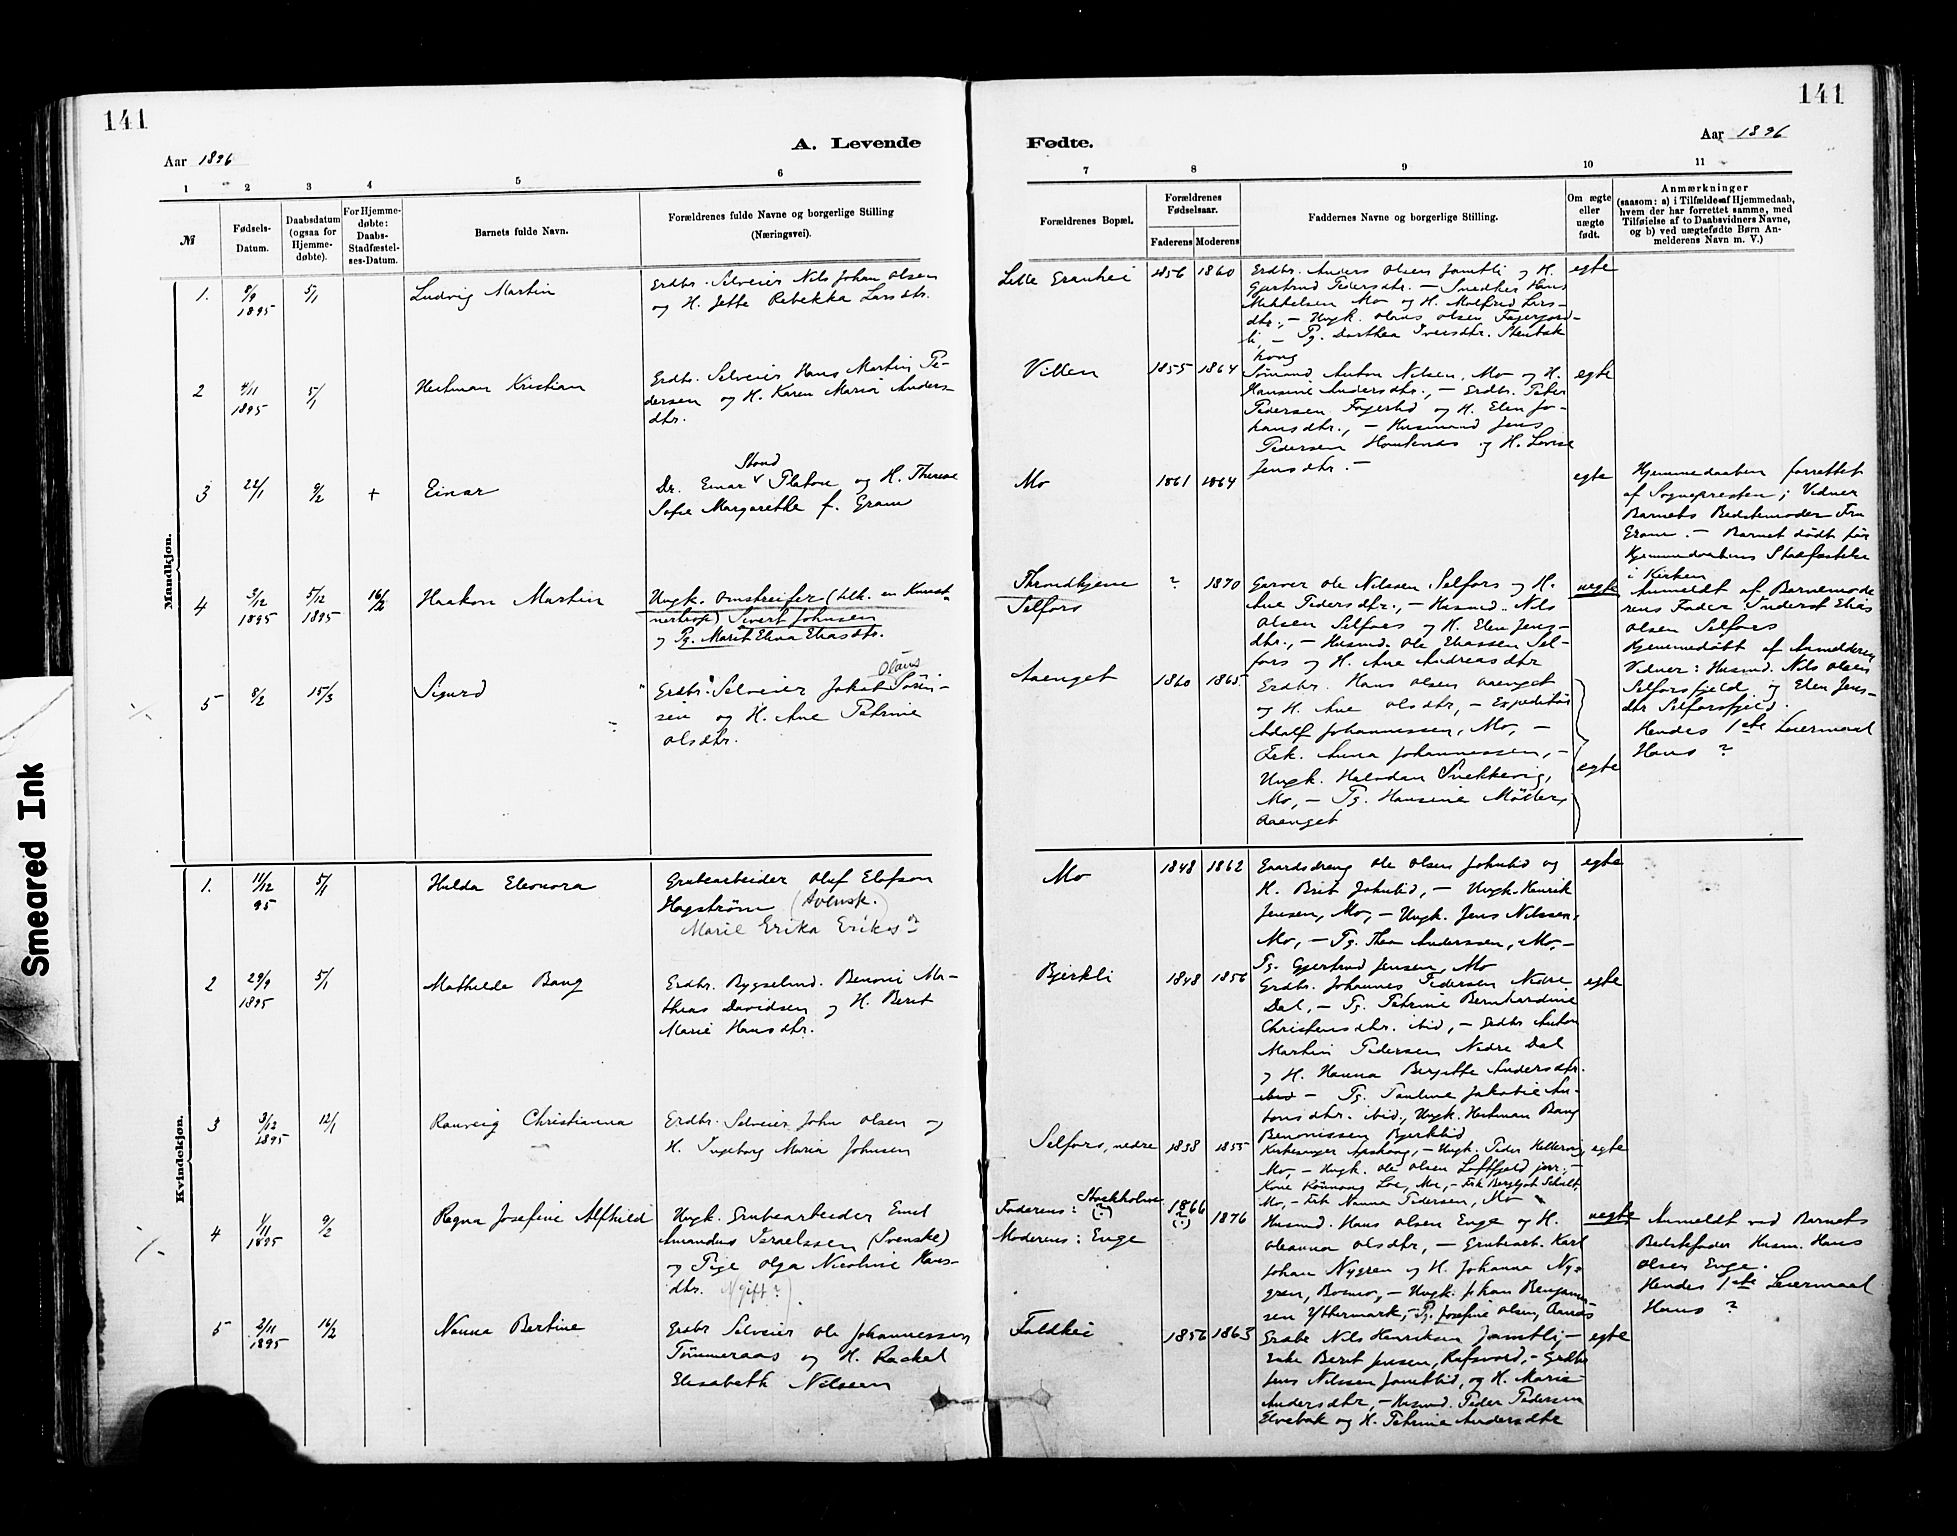 141
141
A. Levende
Fødte.
Aar 1896
Aar 1896
1 2 3 4 5 6
7 8 9 10 11
№
Fødsels-
Datum.
Daabsdatum
(ogsaa for
Hjemme-
døbte).
For Hjemme-
døbte:
Daabs-
Stadfæstel-
ses-Datum.
Barnets fulde Navn.
Forældrenes fulde Navne og borgerlige Stilling
(Næringsvei).
Forældrenes Bopæl.
Forældrenes
Fødselsaar.
Faderens Moderens
Faddernes Navne og borgerlige Stilling.
Om ægte
eller
uægte
født.
Anmærkninger
(saasom: a) i Tilfælde af Hjemmedaab,
hvem der har forrettet samme, med
Tilføielse af to Daabsvidners Navne,
og b) ved uægtefødte Børn An-
melderens Navn m. V.)
Mandkjøn.
1.
8/9
1895
5/1
Ludvig Martin
Erdbr. Selveier Nils Johan Olsen
og H. Jette Rebekka Larsdtr.
1856
1860
Erdbr. Anders Olsen Jamtli og H.
Gjertrud Pedersdtr. – Snedker Hans
Mikkelsen Mo og H. Molfrid Lars-
dtr., – Ungk. Olaus Olsen
li, – Pg. Dorthea Iversdtr.
egte
2
4/11
1895
5/1
Herman Kristian
Erdbr. Selveier Hans Martin Pe-
dersen og H. Karen Maria Anders-
dtr.
Villen
1855
1864
Sømand Anton Nilsen, Mo og H.
Hansine Andersdtr., – Erdbr. Peter
Pedersen Fagerlid og H. Elen Jo-
hansdtr., – Husmand Jens
Pedersen og H. Lovise
Jensdtr. –
egte
3
22/1
9/2
+
Einar
Stoud
Dr. Einar Platou og H. Therese
Sofie Margarethe f. Gram
Mo
1861
1864
egte
Hjemmedaaben forrettet
af Sognepresten; Vidner
Barnets Bedstemoder Fru
Gram. – Barnet dødt før
Hjemmedaabens Stadfæstelse
i Kirken
4
3/12
1895
5/12
1895
16/2
Haakon Martin
Ungk. Omstreifer (blk. en Kunst-
Sivert Johnsen
og Pg. Marit Elina Eliasdtr.
Throndhjem
Selfors
?
1870
Garver Ole Nilssen, Selfors og H.
Ane Pedersdtr., – Husmd. Nils
Olsen Selfors og H. Elen Jens-
dtr., – Husmd. Ole Eliassen Sel-
fors og H. Ane Andreasdtr
uegte
Anmeldt af Barnemode
rens Fader Inderst Elias
Olsen Selfors
Hjemmedøbt af Anmelderen
Vidner: Husmd. Nils Olsen
Selforsfjeld og Elen Jens-
dtr Selforsfjeld.
Hendes 1ste Leiermaal
Hans ?
5
8/2
15/3
Sigurd
Olaus
Erdbr. Selveier Jakob Søren-
sen og H. Ane Petrine
Olsdtr.
Aaenget
1860
1865
Erdbr. Hans Olsen Aaenget
og H. Ane Olsdtr, – Expeditør
Adolf Johannessen, Mo, –
Frk. Anna Johannessen, –
Ungk. Halvdan
Mo, – Pg. Hansine Møller,
Aaenget
egte
Kvindekjøn.
1.
11/12
95
5/1
Hilda Eleonora
Grubearbeider Oluf Elofson
Hagstrøm (svensk.)
Marie Erika Eriks
Mo
1848
1862
Gaardsdreng Ole Olsen og
H. Brit – Ungk. Henrik
Jensen, Mo, – Ungk. Jens Nilssen,
Mo, – Pg. Thea Anderssen, Mo, –
Pg. Gjertrud Jensen, Mo
egte
2
29/9
1895
5/1
Mathilde Bang
Erdbr. Bygselmd. Benoni Ma-
thias Davidsen og H. Berit
Marie Hansdtr.
Bjerkli
1848
1856
Erdbr. Johannes Pedersen Nedre
Dal, – Pg. Petrine Bernhardine
Christensdtr. ibid, – Erdbr Anton
Martin Pedersen Nedre Dal
og H. Hanna Bergitte Andersdtr.
ibid – Pg. Pauline Jakobie An-
tonsdtr. ibid., Ungk. Herman Bang
Benonissen Bjerklid
egte
3
3/12
1895
12/1
Ranveig Christianna
Erdbr. Selveier John Olsen og
H. Ingeborg Maria Johnsen
Selfors, nedre
1838
1855
Kirkesanger – Ungk. Peder
Mo, – Ungk. Ole Olsen Loftfjeld jnr., –
Kone Loe, Mo, – Frk Bergljot
Mo, – Frk Nanna Pedersen, Mo
egte
4
1/11
1895
9/2
Regna Josefine Alfhild
Ungk. Grubearbeider Emil
Amandus Israelssen (Svenske)
og Pige Olga Nicoline Hans-
dtr.
Faderens: Stockholm (?)
Moderens: Enge
1866
(?)
1876
Husmd. Hans Olsen Enge og H.
Oleanna Olsdtr, – Grubearb. Karl
Johan Nygren og H. Johanna Ny-
gren, Bosmo, – Ungk. Johan Benjamin-
sen Yttermark, – Pg. Josefine Olsen,
uegte
Anmeldt ved Barnets
Bedstefader Husm. Hans
Olsen Enge.
Hendes 1ste Leiermaal
Hans ?
5
2/11
1895
16/2
Nanna Bertine
Erdbr Selveier Ole Johannessen
Tømmeraas og H. Rackel
Elisabeth Nilssen
Foldhei
1856
1863
Nils Henriksen Jamtli, –
Enke Berit Jensen, – Erdbr
Jens Nilssen Jamtlid, og H. Marie
Andersdtr, – Husmd. Peder Pedersen
Elvebak og H. Petrine Andersdtr
egte
Smeared Ink